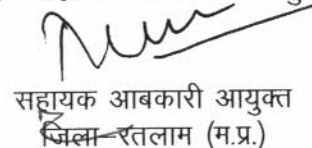 सहायक आबकारी आयुक्त
जिला रतलाम (म.प्र.)